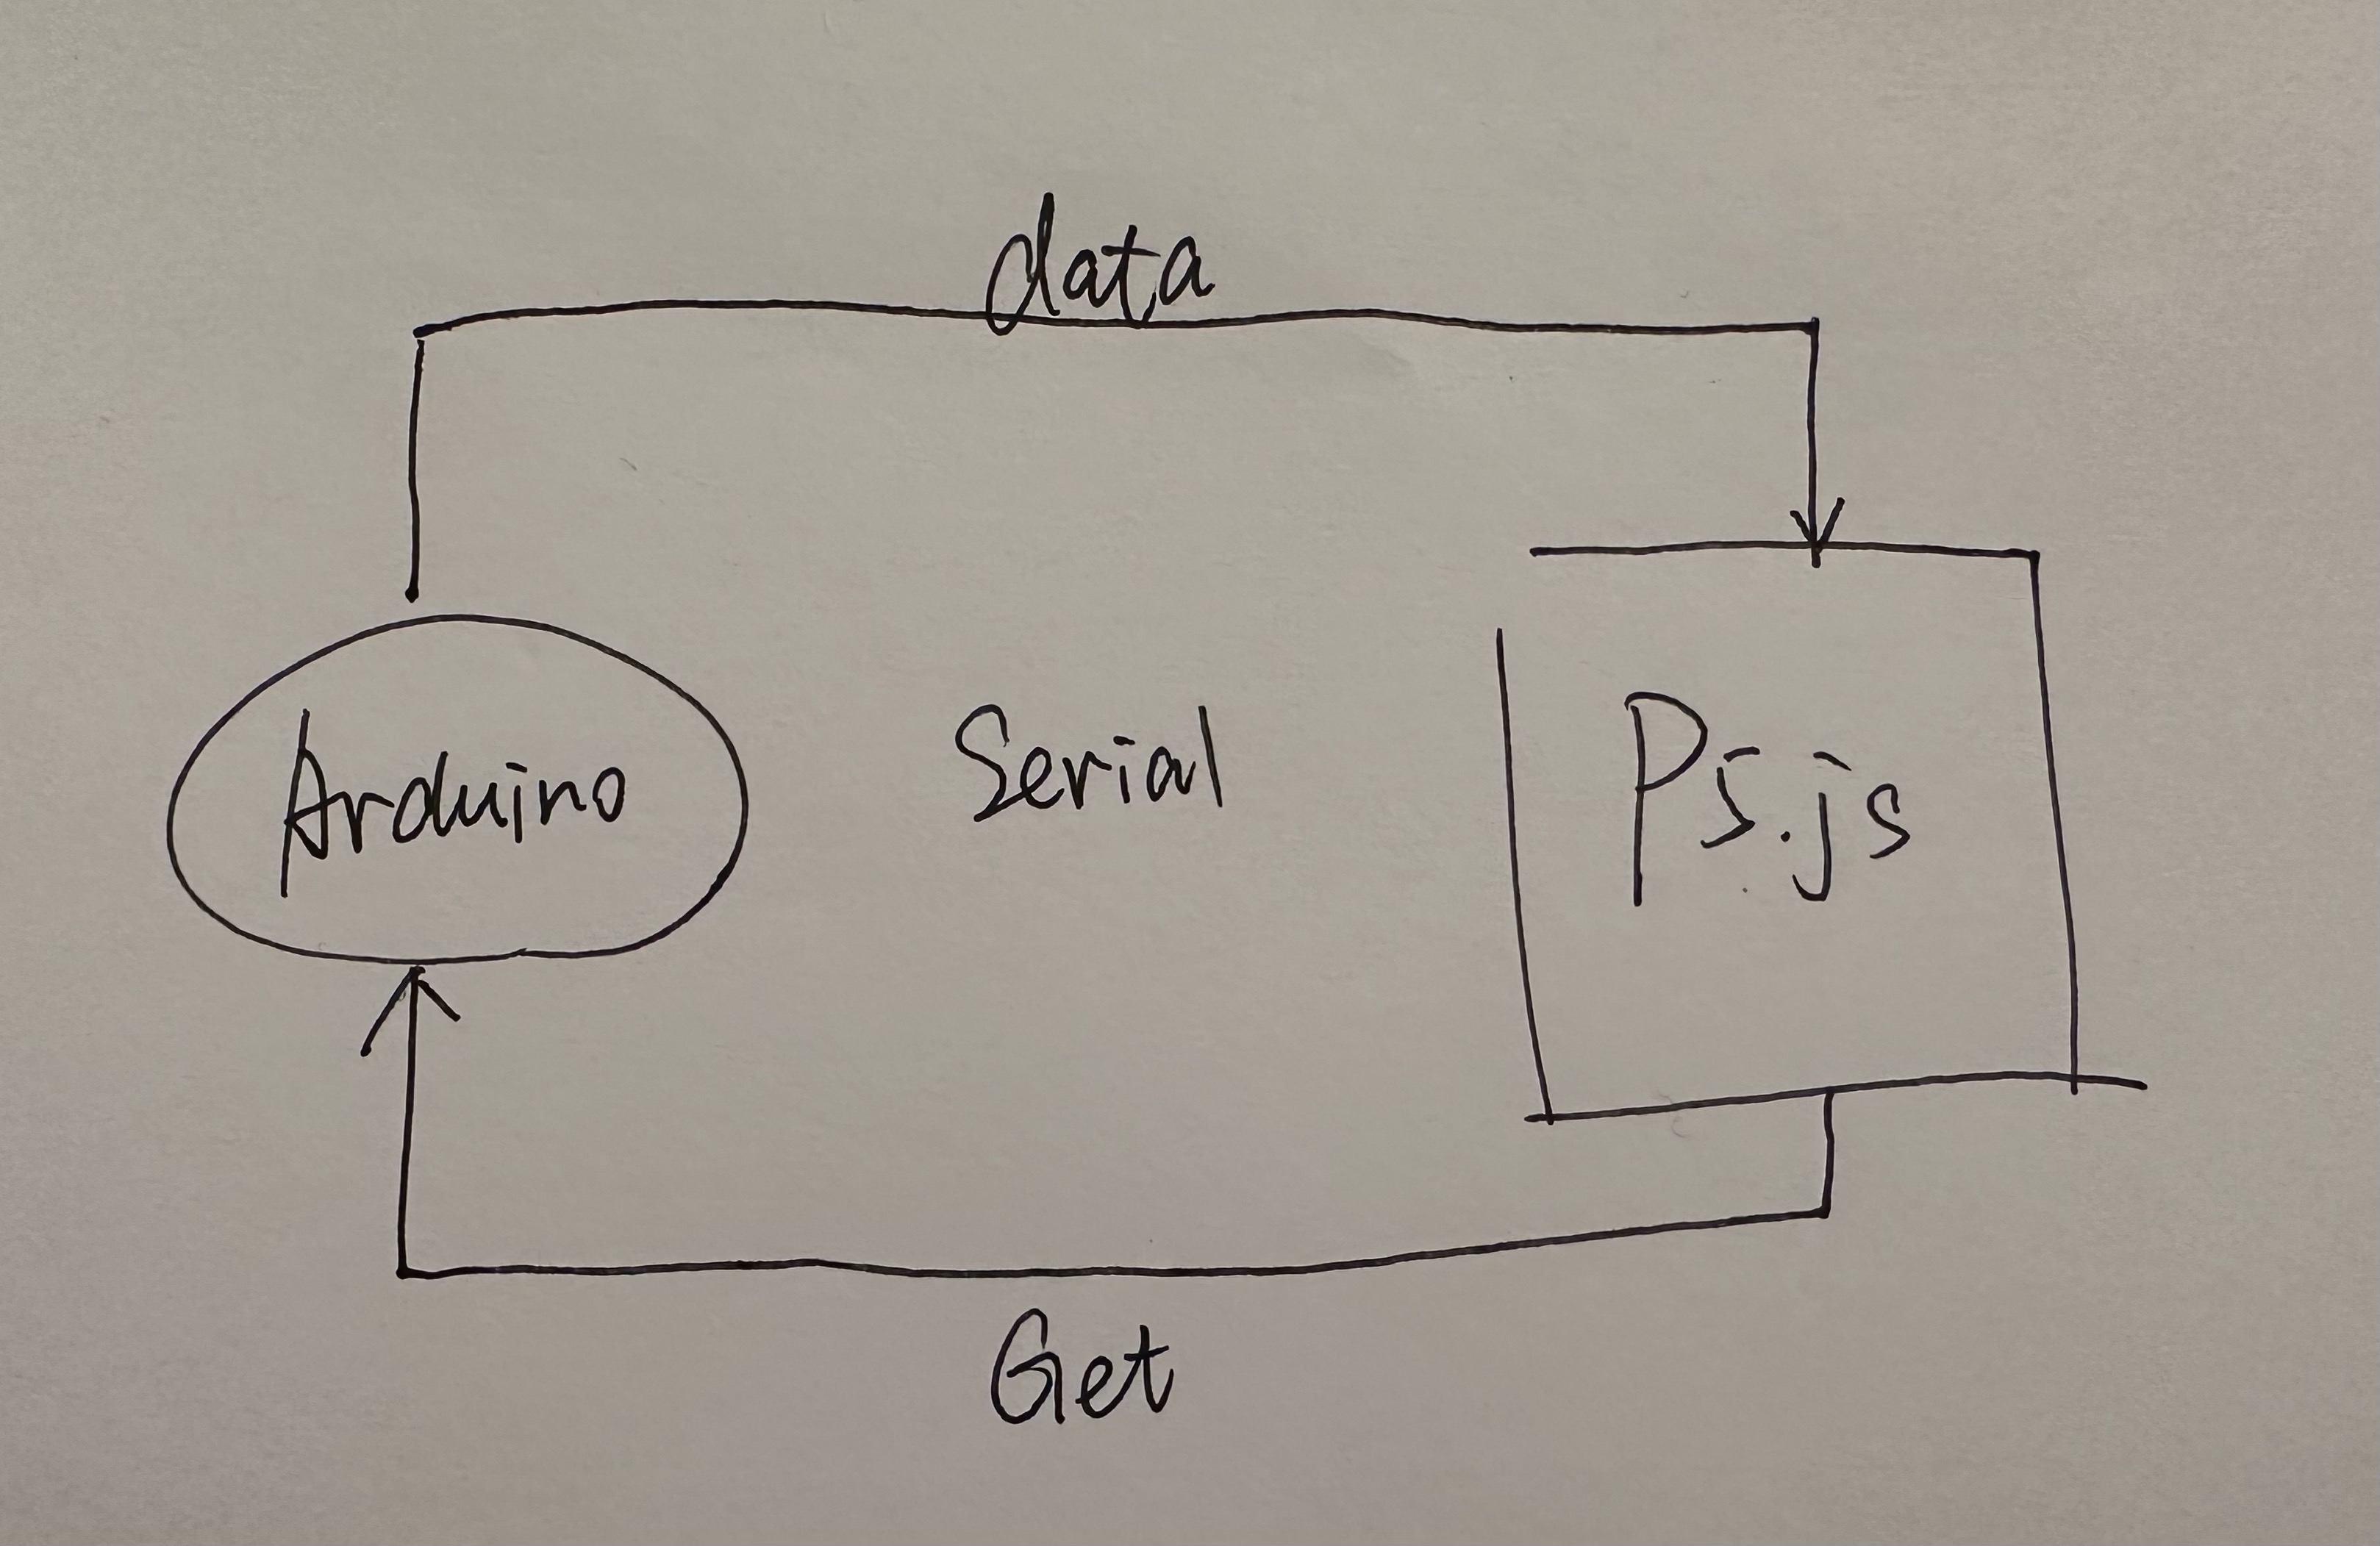 data
Arduino
Serial
P5.js
Get